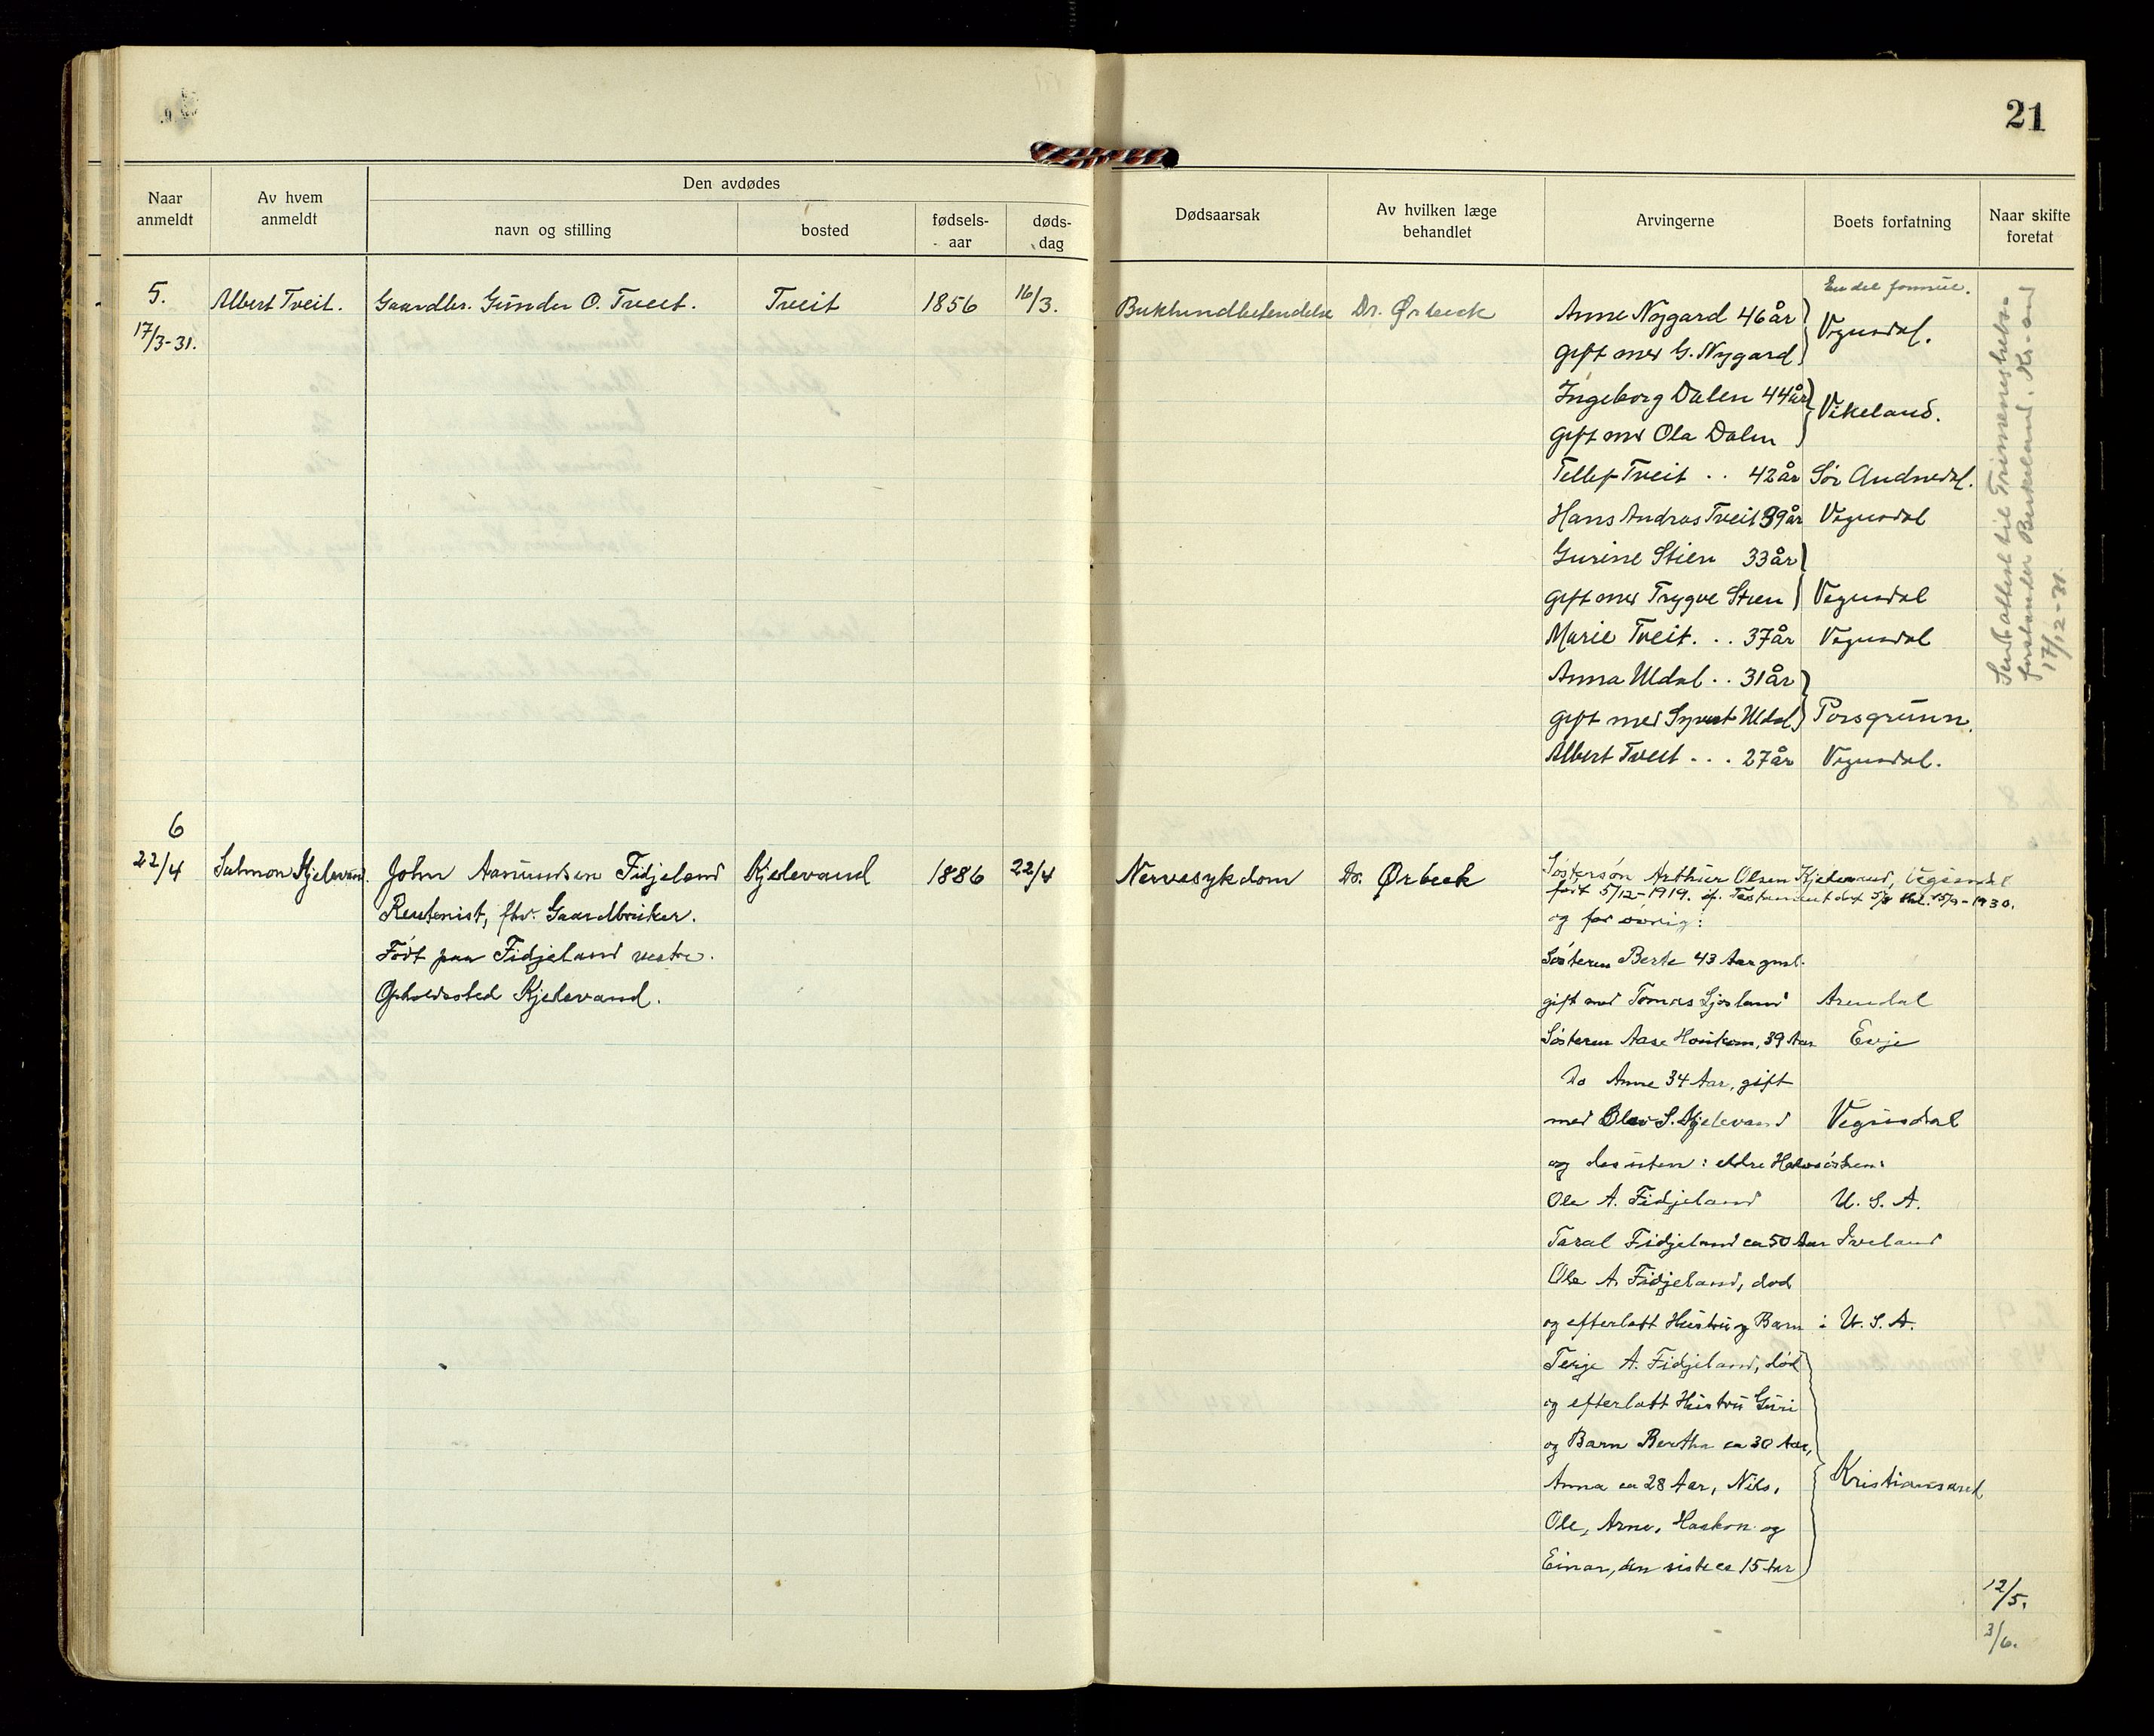 21
Naar anmeldt
Av hvem anmeldt
Den avdødes
navn og stilling
bosted
fødsels-aar
døds-dag
Dødsaarsak
Av hvilken læge behandlet
Arvingerne
Boets forfatning
Naar skifte foretat
5.
17/3-31.
Albert Tveit.
Gaardbr. Gunder O. Tveit.
Tveit
1856
16/3.
Bukhindbetendelse
Dr. Ørbeck
En del formue.
Anne Nygard 46 år
gift med G. Nygard
Vegusdal.
Ingeborg Dalen 44 år
gift med Ola Dalen
Vikeland.
Tellef Tveit .. 42 år Sør Audnedal.
Hans Andreas Tveit 39 år Vegusdal
Gurine Stien 33 år
gift med Trygve Stien Vegusdal
Marie Tveit. .. 37 år Vegusdal
Anna Uldal .. 31 år
gift med Syvert Uldal Porsgrunn.
Albert Tveit ... 27 år Vegusdal.
Sendt attest til
forstander Birkeland, Kr.sand
17/12-31.
6
22/4
Salmon Kjelevand.
John Aanundsen Fidjeland
Rentenist, fhv. Gaardbruker.
Født paa Fidjeland vestre.
Opholdssted Kjelevand.
Kjelevand
1886
22/4
Nervesykdom
Dr. Ørbeck
Søstersøn Arthur Olsen Kjelevand, Vegusdal
født 5/12-1919. jf. Testament dat 5/9 1930.
og for øvrig:
Søsteren Berte 43 Aar gml.
gift med Tomas Ljosland Arendal
Søsteren Aase Hovikom, 39 Aar Evje
Do Anne 34 Aar, gift
med Olav S. Kjelevand Vegusdal
og desuten: eldre Halvsøsken:
Ole A. Fidjeland U. S. A.
Taral Fidjeland ca 50 Aar Iveland
Ole A. Fidjeland, død
og efterlatt Hustru og Barn i U. S. A.
Terje A. Fidjeland, død
og efterlatt Hustru Guri
og Barn Bertha ca 30 Aar,
Anna ca 28 Aar, Nils,
Ole, Arne, Haakon og
Einar, den siste ca 15 Aar
Kristiansand
12/5.
3/6.